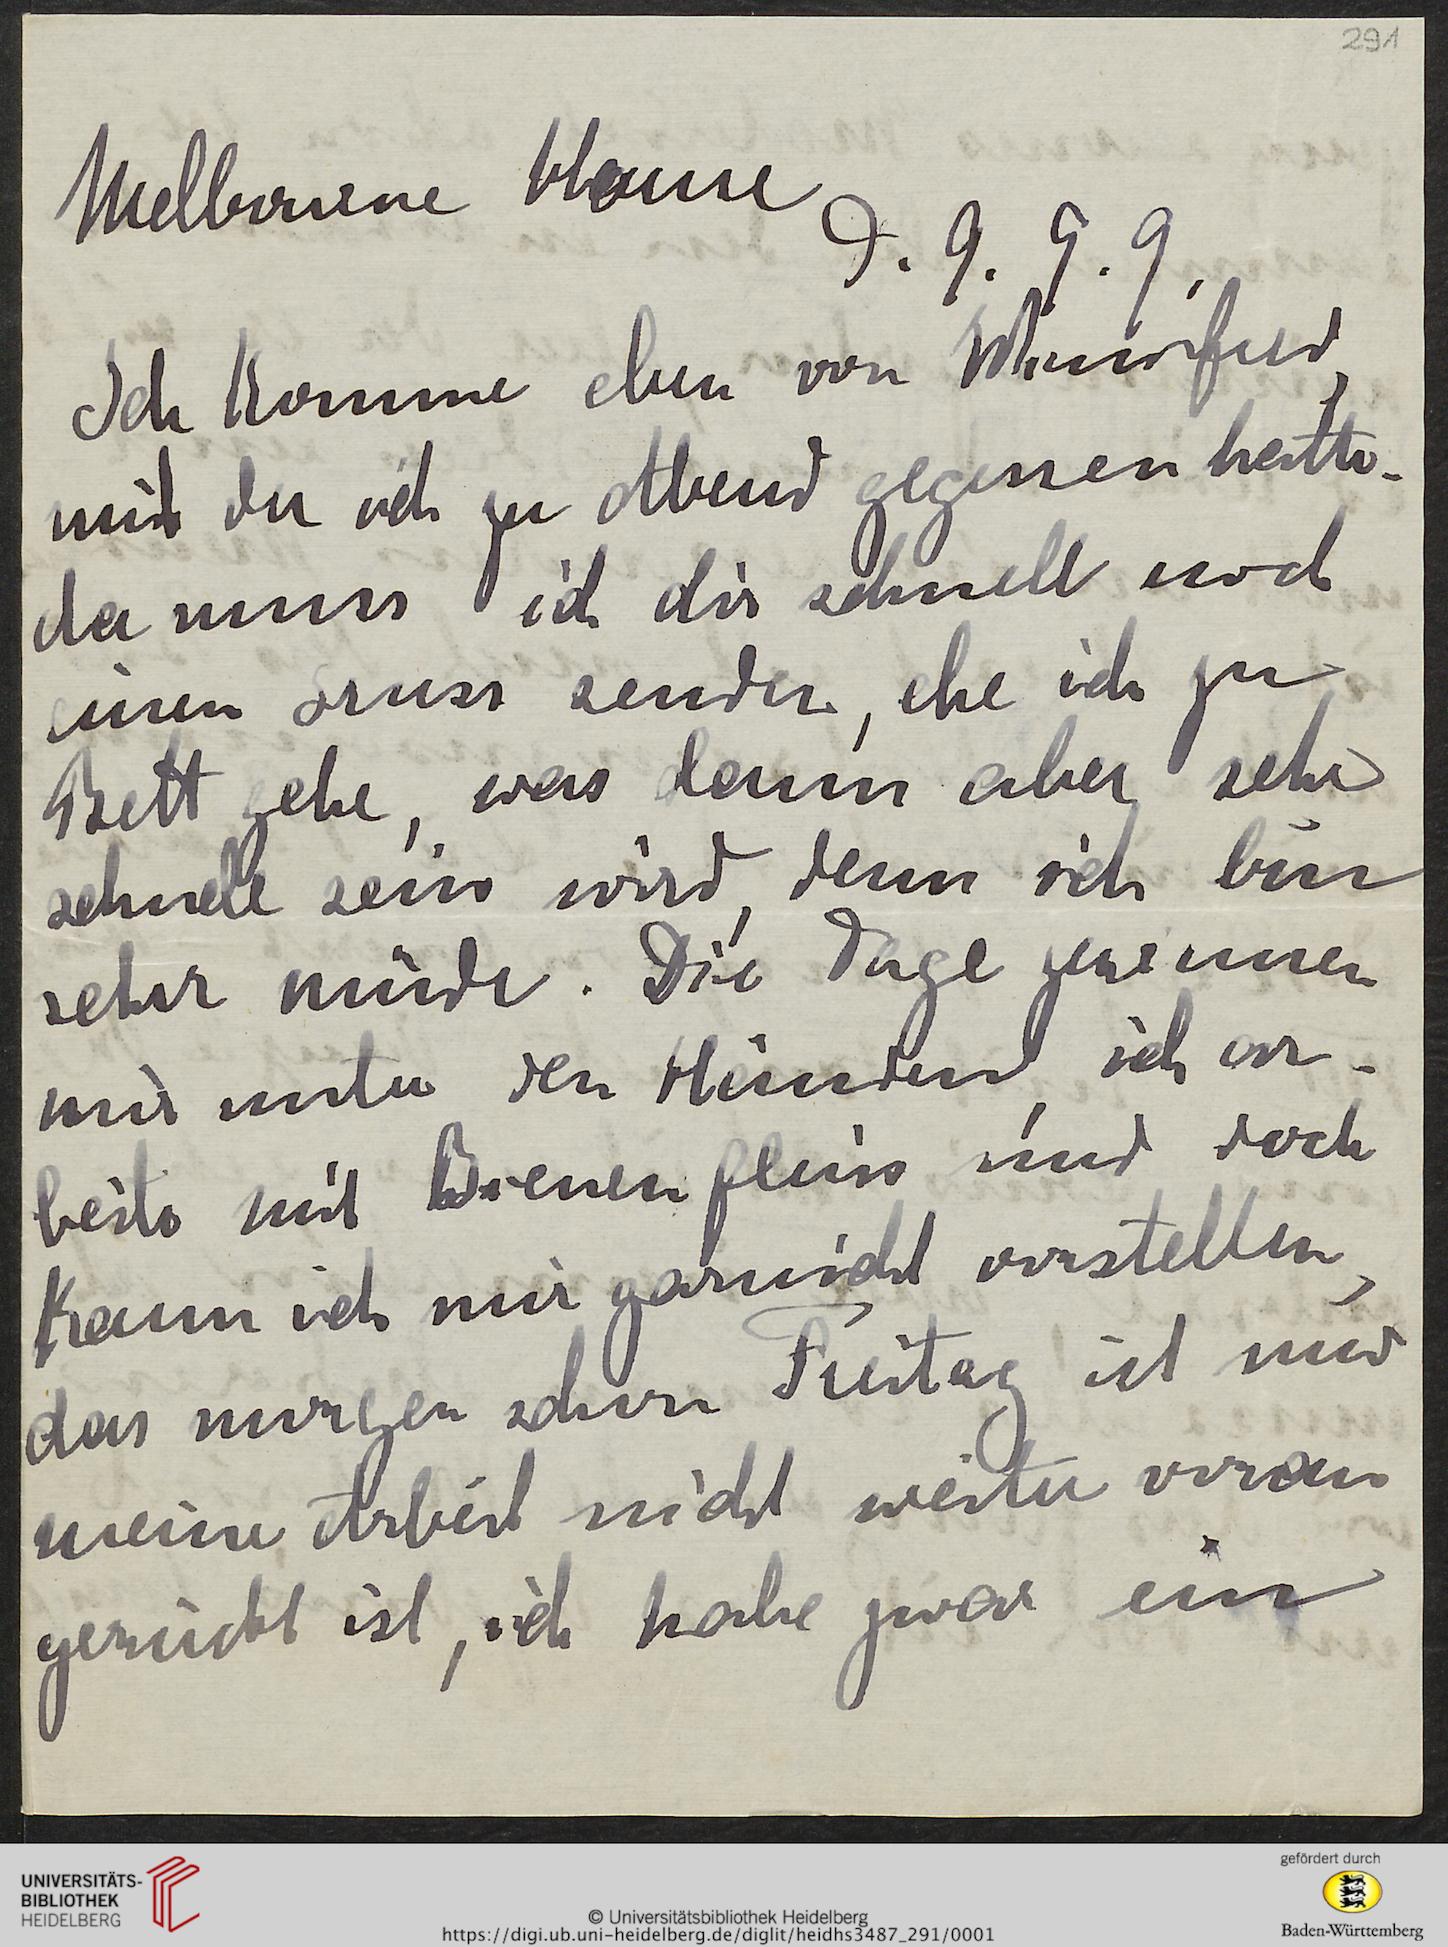 291
Melbourne House
D. 9. 9. 9.
Ich komme eben von Winifred,
mit der ich zu Abend gegessen hatte.
da muss ich dir schnell noch
einen Gruss senden, ehe ich zu
Bett gehe, was dann aber sehr
schnell sein wird, denn ich bin
sehr müde. Die Tage zerinnen
mir unter den Händen, ich ar-
beite mit Bienenfleiss und doch
kann ich mir garnicht vorstellen,
das morgen schon Freitag ist und
meine Arbeit nicht weiter voran
gerückt ist, ich habe zwar ein
UNIVERSITÄTS-
BIBLIOTHEK
HEIDELBERG
© Universitätsbibliothek Heidelberg
https://digi.ub.uni-heidelberg.de/diglit/heidhs3487_291/0001
gefördert durch
Baden-Württemberg